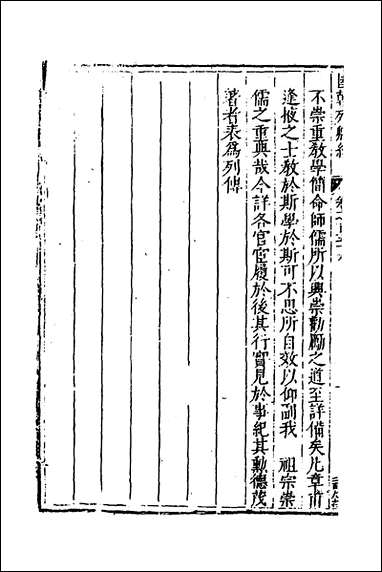 國朝列卿紀
不崇重敎學簡命師儒所以興崇勸勵之道至詳備矣凡章甫
逢掖之士敎於斯學於斯可不思所自效以仰副我　祖宗崇
儒之重典哉今詳各官宦履於後其行實見於事紀其勳德茂
著者表爲列傳